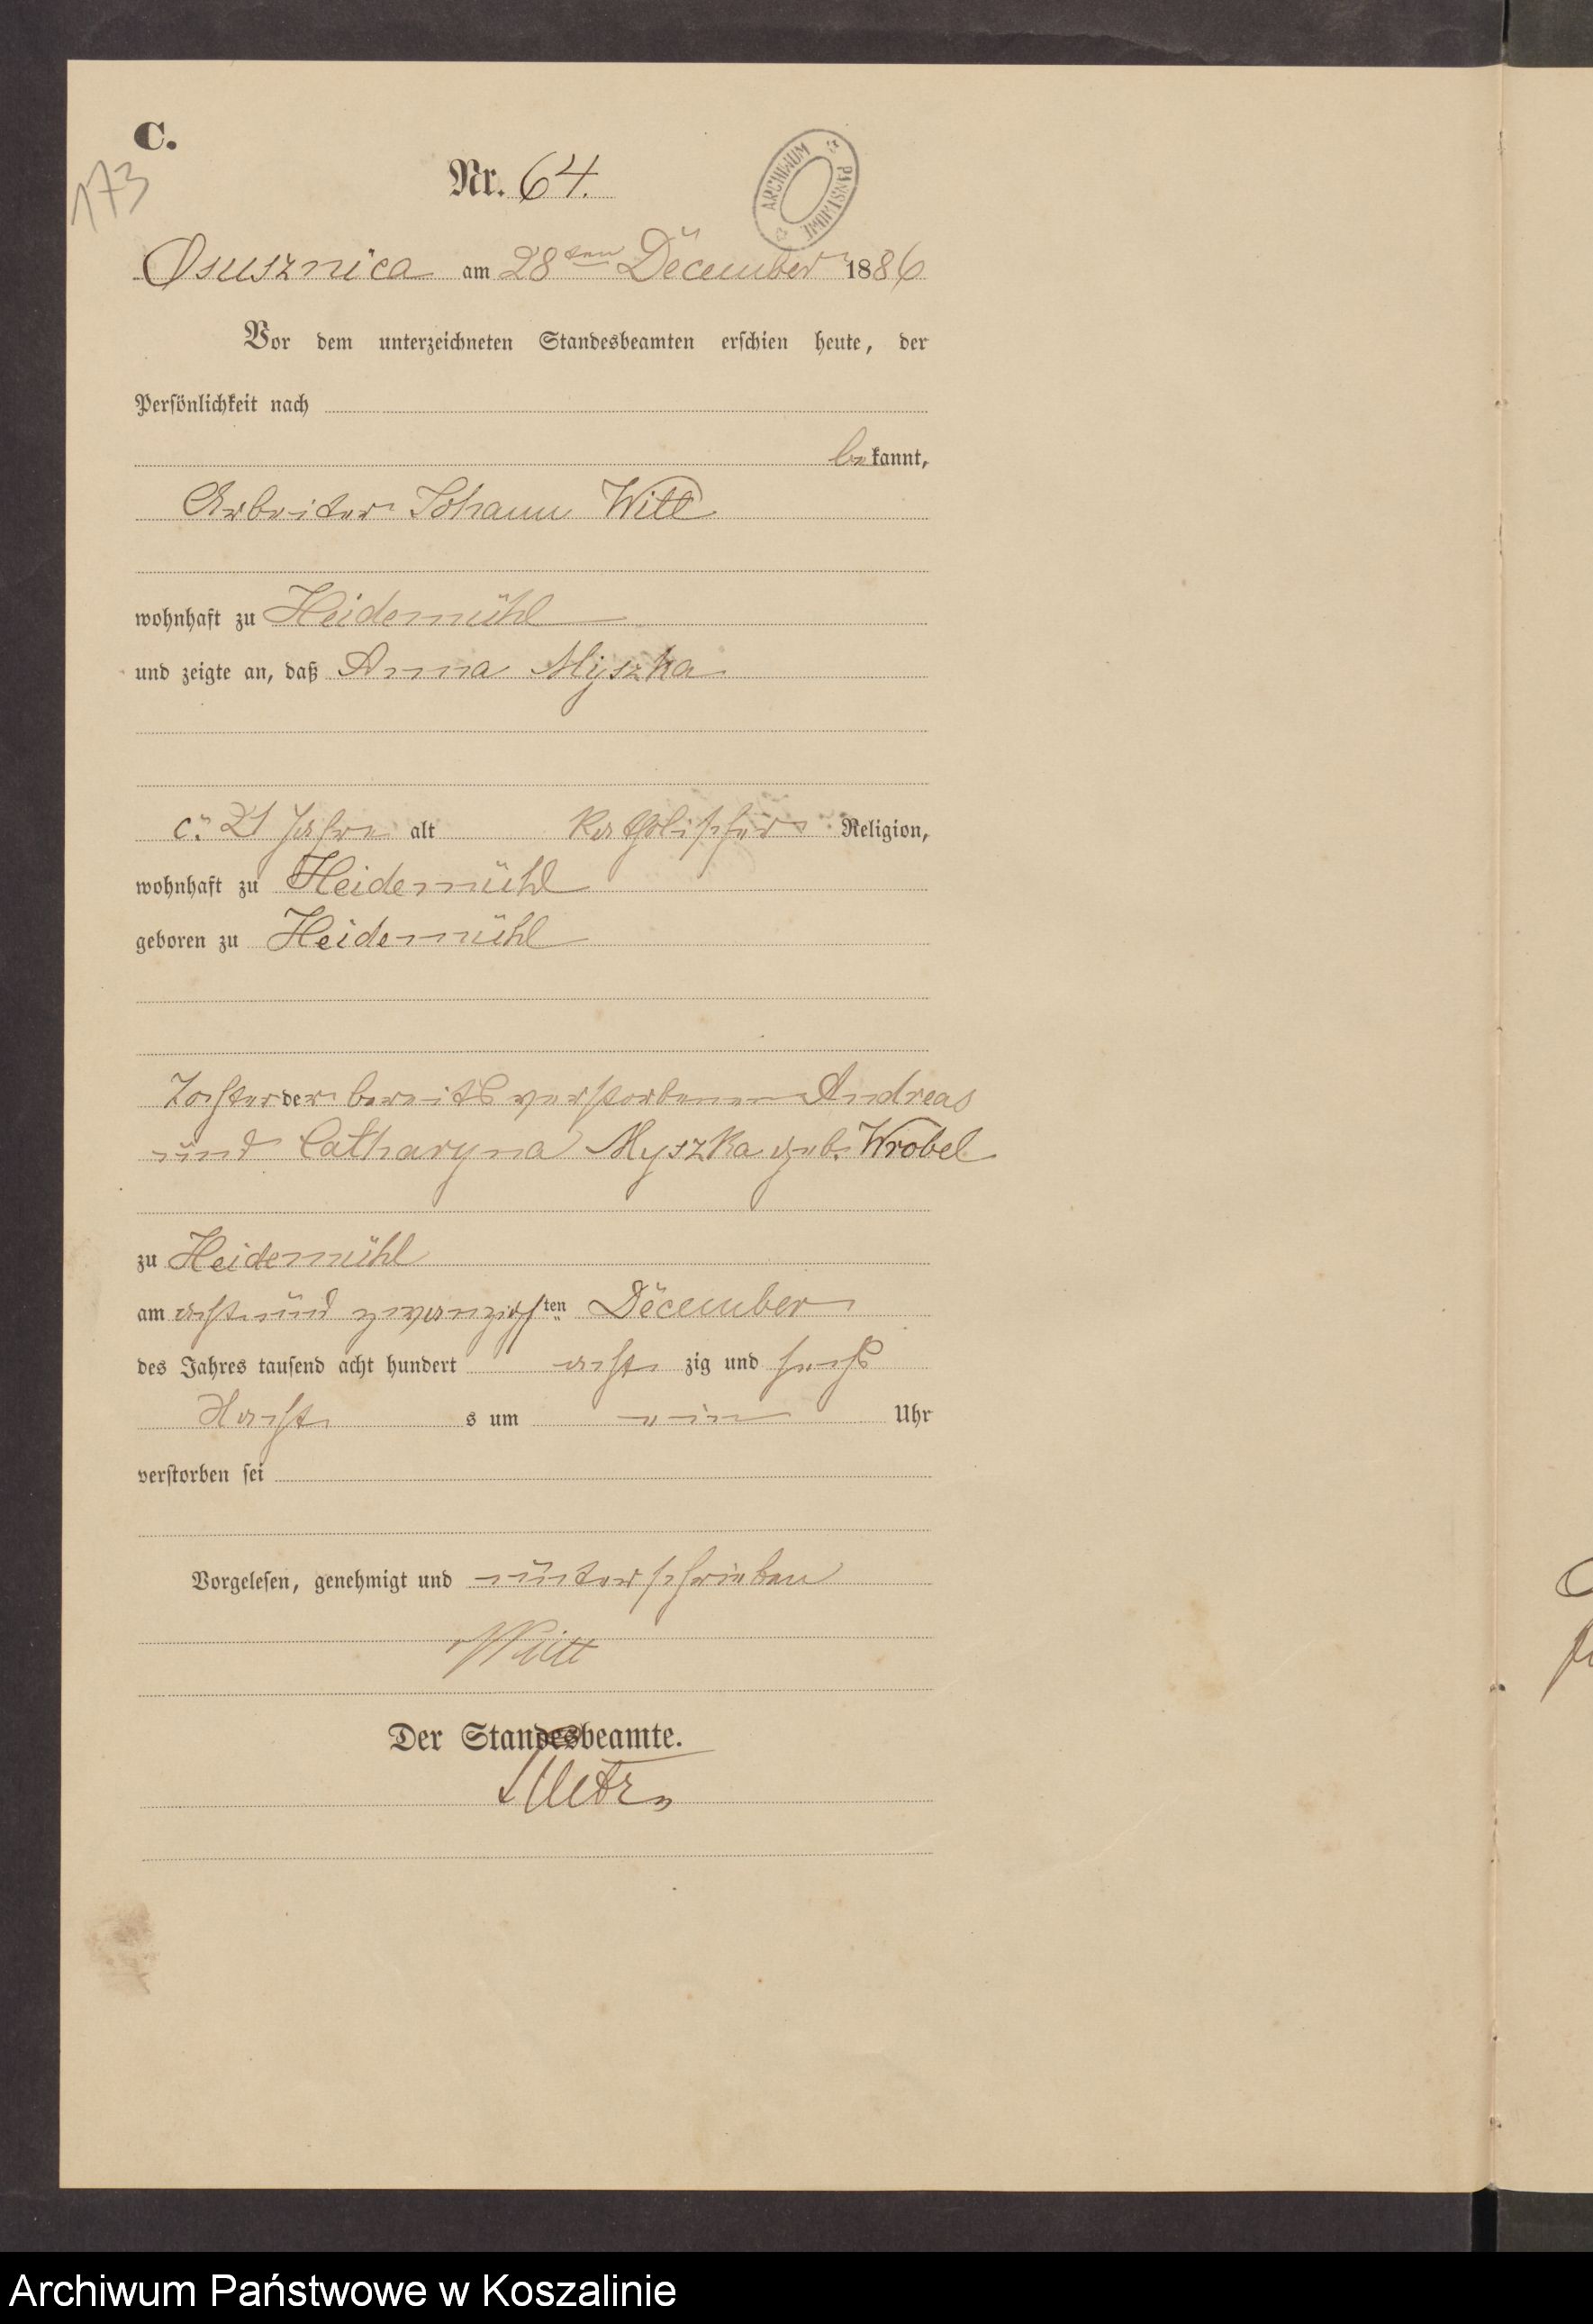 C.
173
Nr. 64.
ARCHIWUM PAŃSTWOWE
Osusznica am 28ten December 1886
Vor dem unterzeichneten Standesbeamten erschien heute, der
Persönlichkeit nach
bekannt,
Arbeiter Johann Witt
wohnhaft zu Heidemühl
und zeigte an, daß Anna Myszka
c. 21 Jahre alt katholischer Religion,
wohnhaft zu Heidemühl
geboren zu Heidemühl
Tochter der bereits verstorbenen Andreas
und Catharyna Myszka geb. Wrobel
zu Heidemühl
am acht und zwanzigsten December
des Jahres tausend acht hundert acht zig und sechs
Nachts um ein Uhr
verstorben sei
Vorgelesen, genehmigt und unterschrieben
Witt
Der Standesbeamte.
Archiwum Państwowe w Koszalinie